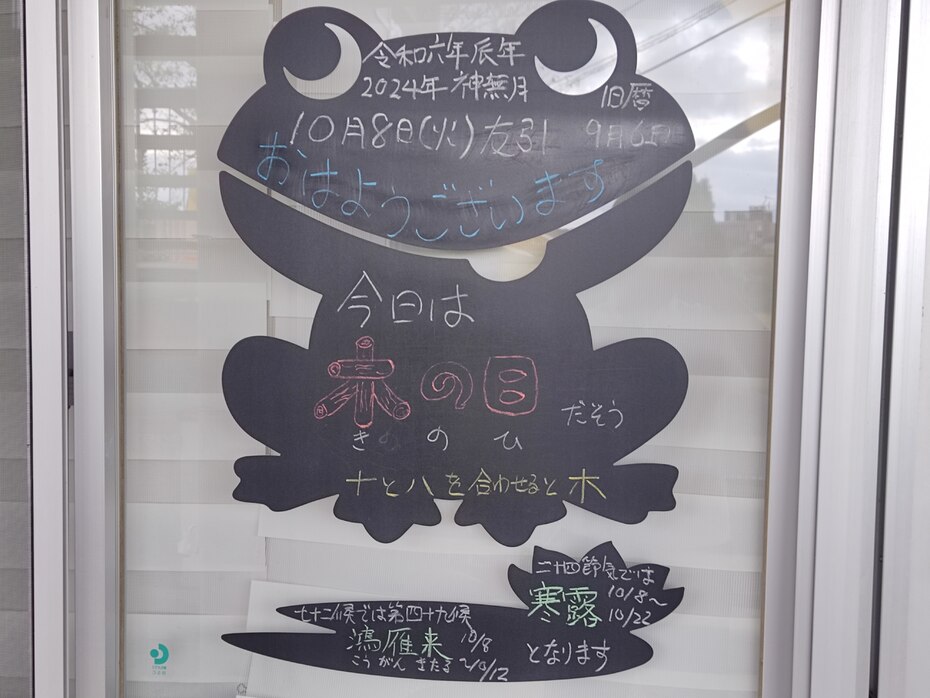 令和六年辰年
2024年 神無月
旧暦
10月8日(火)友引 9月6日
おはようございます
今日は
木の日
だそう
きのひ
十と八を合わせると木
二十四節気では
寒露
10/8~
10/22
七十二候では第四十九候
鴻雁来
10/8
こうがんきたる ~10/12
となります